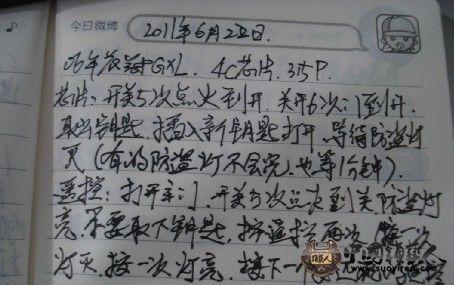 今日微博 2011年6月22日.
06年花冠GXL. 4C芯片. 315P.
芯片: 开关5次点火到开. 关开6次门到开.
取出钥匙. 插入新钥匙打开. 等待防盗灯
灭(有的防盗灯不会完. 也等1分钟).
遥控: 打开车门. 开关5次点火到关. 防盗灯
亮. 不要取下钥匙. 按遥控两次. 按一次
灯灭. 按一次灯亮. 按下一
www.suoyiren.com